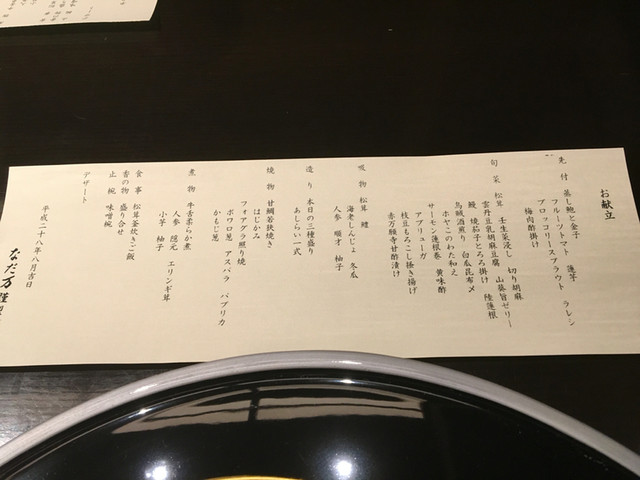 お献立
先付 蒸し鮑と金子
フルーツトマト 蓮芋 ラレシ
ブロッコリースプラウト
梅肉酢掛け
旬菜 松茸 壬生菜浸し 切り胡麻
雲丹豆乳胡麻豆腐 山葵旨ゼリー
鰻 焼茄子とろろ掛け 陸蓮根
烏賊酒煎り 白瓜昆布〆
ホヤこのわた和え
サーモン蓮根巻 黄味酢
アブリューガ
枝豆もろこし掻き揚げ
赤万願寺甘酢漬け
吸物 松茸 鱧
海老しんじょ 冬瓜
人参 順才 柚子
造り 本日の三種盛り
あしらい一式
焼物 甘鯛若狭焼き
はじかみ
フォアグラ照り焼
ポワロ葱 アスパラ パプリカ
かもじ葱
煮物 牛舌柔らか煮
人参 隠元 エリンギ茸
小芋 柚子
食事 松茸茶炊きご飯
香の物 盛り合せ
止椀 味噌椀
デザート
平成二十八年八月吉日
なだ万